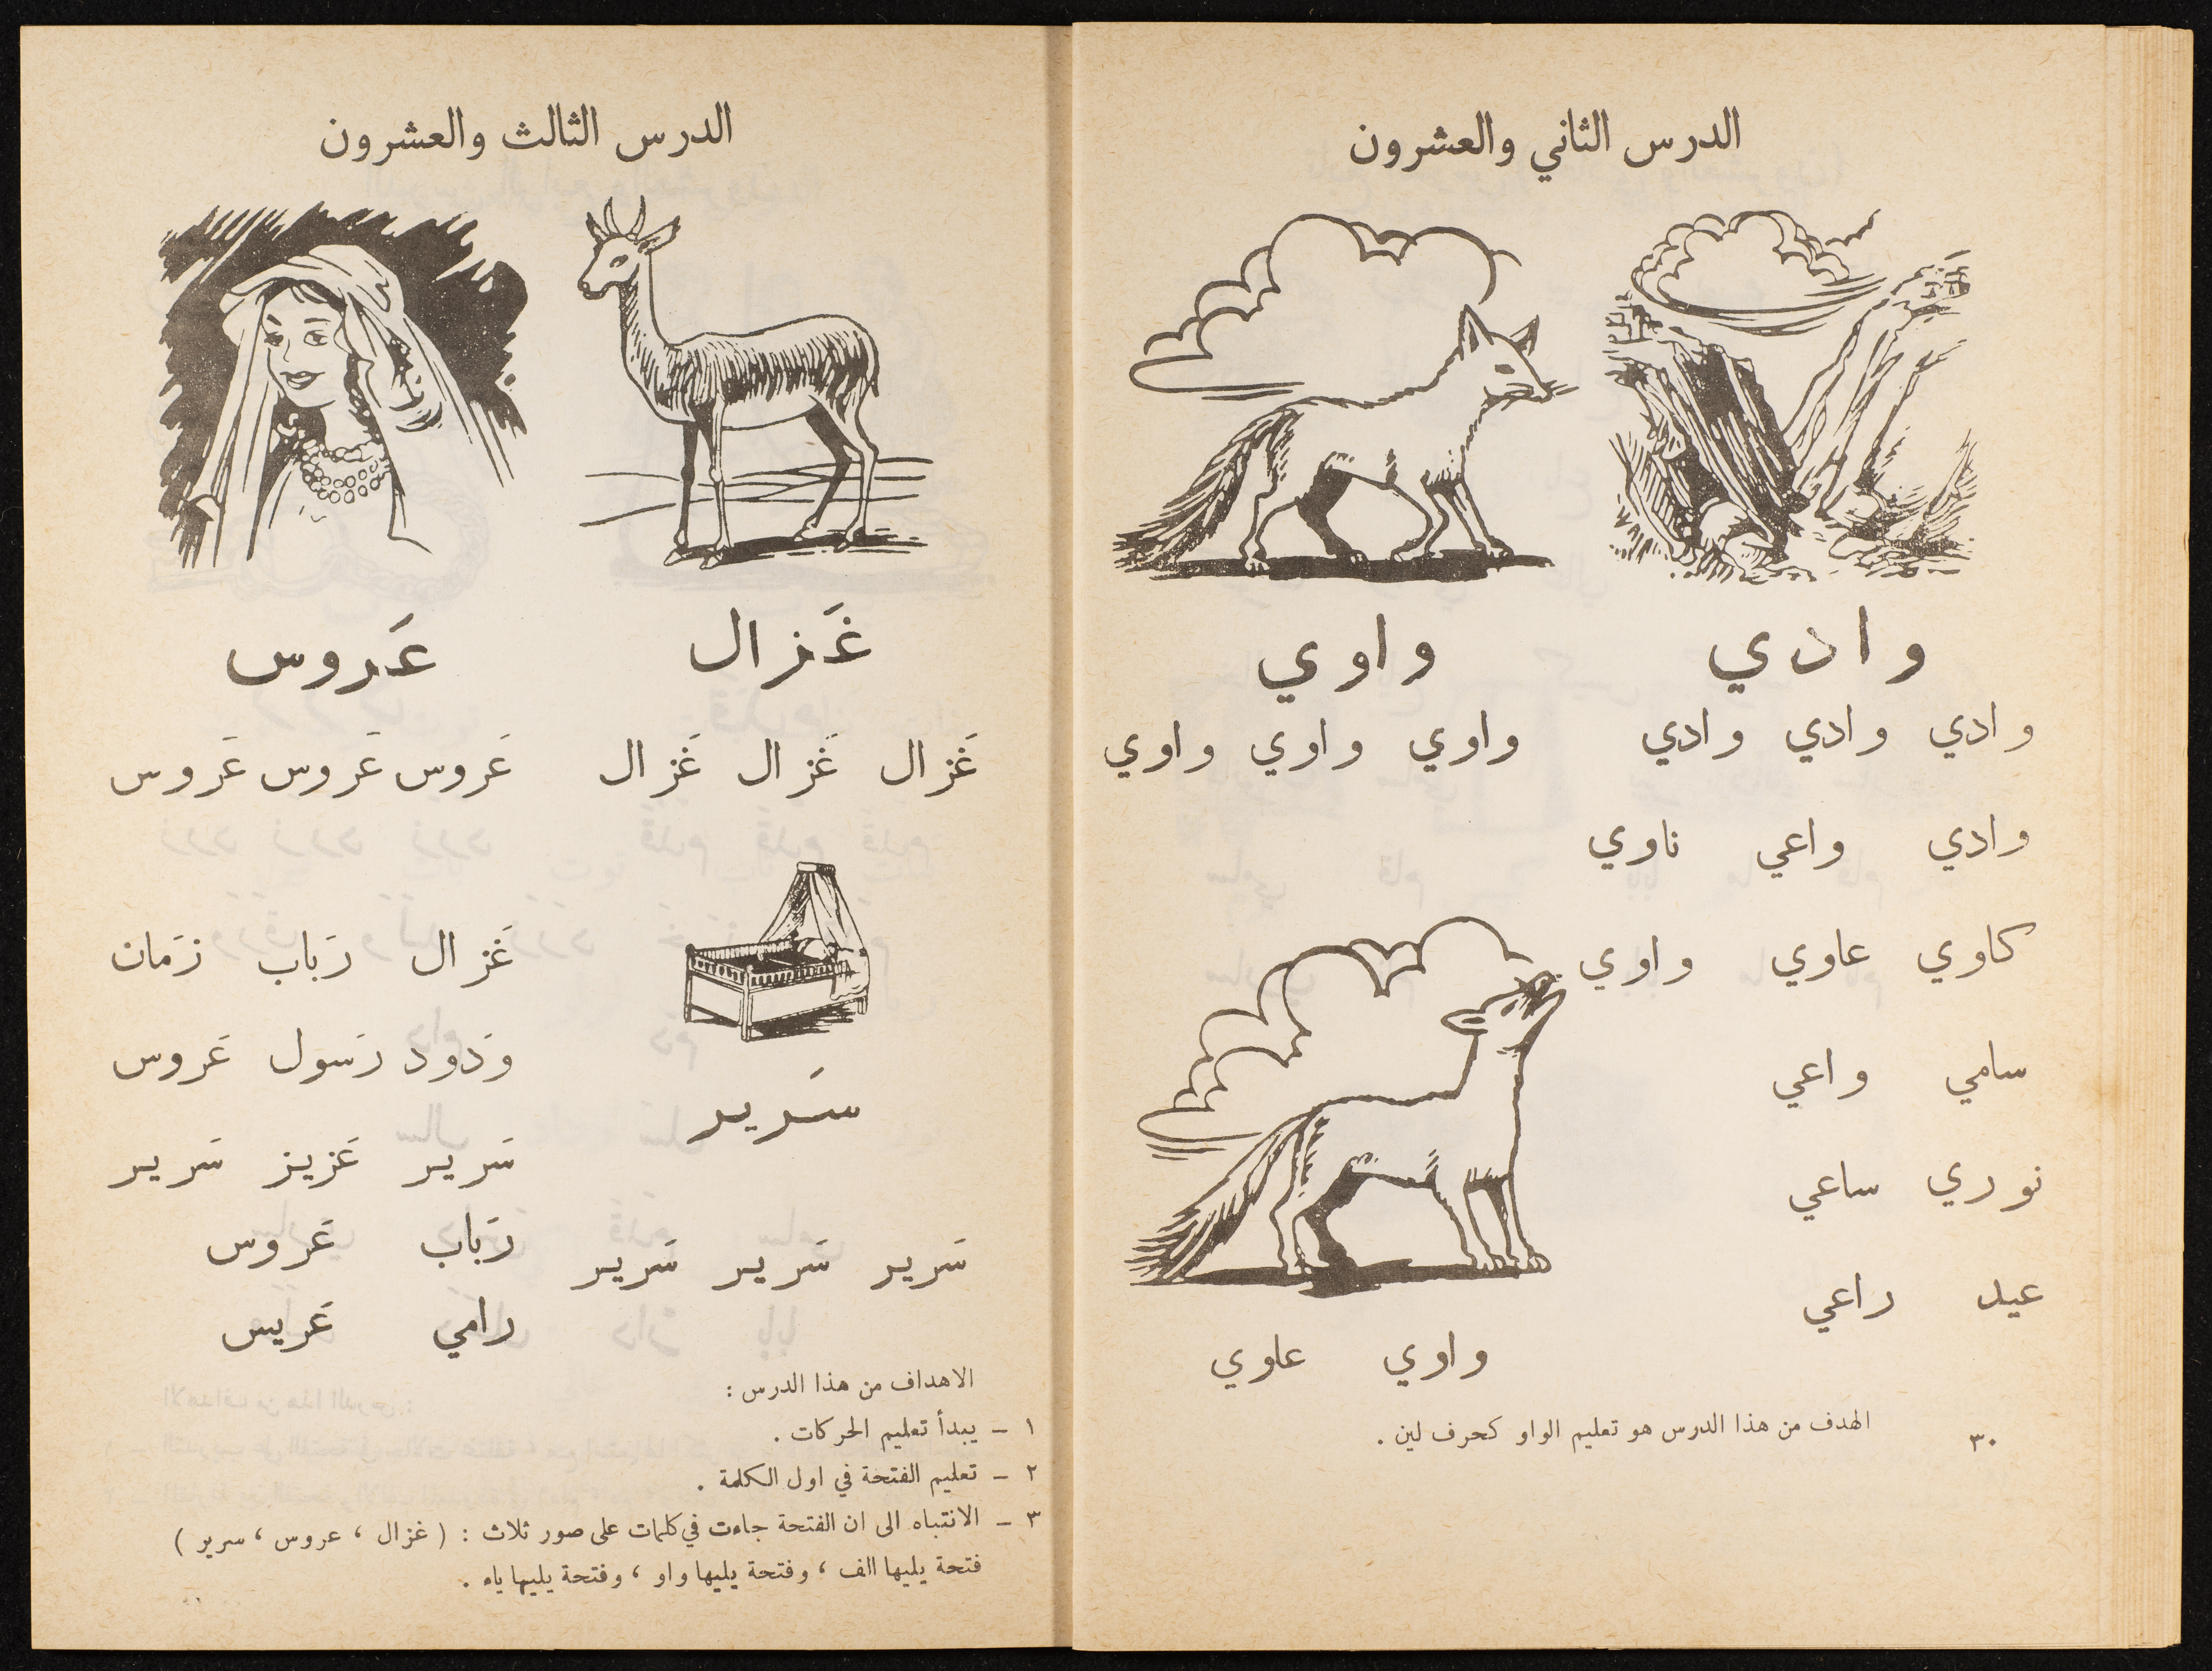 الدرس الثاني والعشرون
وادي
واوي
وادي وادي وادي
واوي واوي واوي
وادي واعي ناوي
كاوي عاوي واوي
سامي واعي
نوري ساعي
عيد راعي
واوي عاوي
الهدف من هذا الدرس هو تعليم الواو كحرف لين .
٣٠
الدرس الثالث والعشرون
غَزال
عَروس
غَزال غَزال غَزال
عَروس عَروس عَروس
سَرير
سَرير سَرير سَرير
غَزال رَباب زَمان
وَدود رَسول عَروس
سَرير عَزيز سَرير
رَباب عَروس
رامي عَريس
الاهداف من هذا الدرس :
١ - يبدأ تعليم الحركات .
٢ - تعليم الفتحة في اول الكلمة .
٣ - الانتباه الى ان الفتحة جاءت في كلمات على صور ثلاث : ( غزال ، عروس ، سرير )
فتحة يليها الف ، وفتحة يليها واو ، وفتحة يليها ياء .